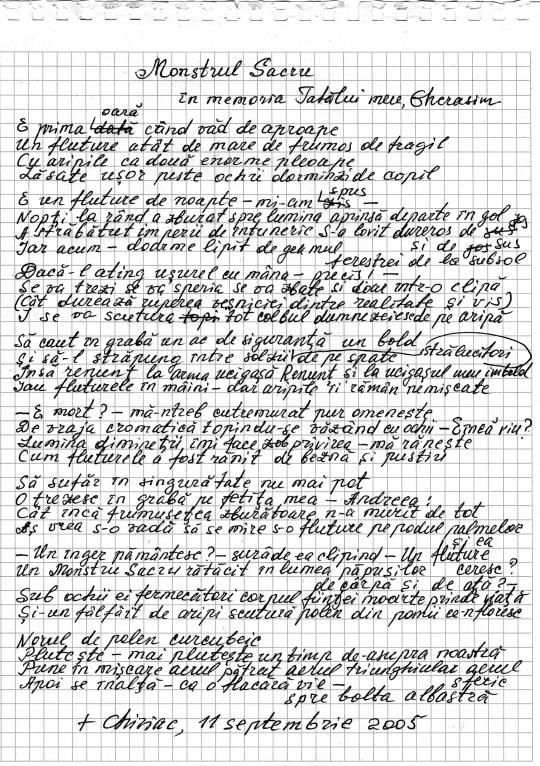 Monstrul Sacru
în memoria Tatălui meu, Gherasim
oară
E prima dată când văd de aproape
Un fluture atât de mare de frumos de fragil
Cu aripile ca două enorme pleoape
Lăsate ușor peste ochii dorminzi de copil
E un fluture de noapte – mi-am spus –
Nopți la rând a zburat spre lumina aprinsă departe în gol
A străbătut imperii de întuneric S-a lovit dureros de jos
Iar acum – doarme lipit de geamul și de sus
ferestrei de la subsol
Dacă-l ating ușurel cu mâna – precis! –
Se va trezi se va speria se va zbate și doar într-o clipă
(Cât durează ruperea veșniciei dintre realitate și vis)
I se va scutura tot colbul dumnezeiesc de pe aripă
Să caut în grabă un ac de siguranță un bold strălucitori
Și să-l străpung între solzii de pe spate
Însă renunt la arma ucigașă Renunt și la ucigașul meu imbold
Iau fluturele în mâini – dar aripile îi rămân nemișcate
– E mort? – mă-ntreb cutremurat pur omenește
De vraja cromatică topindu-se văzând cu ochii – E încă viu?
Lumina dimineții îmi face zob privirea – mă rănește
Cum fluturele a fost rănit de beznă și pustiu
Să sufăr în singurătate nu mai pot
O trezesc în grabă pe fetița mea – Andreea:
Cât încă frumusețea zburătoare n-a murit de tot
Aș vrea s-o vadă să se mire s-o fluture pe podul palmelor
și ea
– Un înger pământesc? – surâde ea clipind – Un fluture
Un Monstru Sacru rătăcit în lumea păpușilor ceresc?
de cârpă și de ață? –
Sub ochii ei fermecători corpul ființei moarte prinde viață
Și-un fâlfâit de aripi scutură polen din pomii ce-nfloresc
Norul de polen curcubeic
Plutește – mai plutește un timp de-asupra noastră
Pune în mișcare aerul pătrat aerul triunghiular aerul
sferic
Apoi se înalță – ca o flacără vie –
spre bolta albastră
+ Chiriac, 11 septembrie 2005